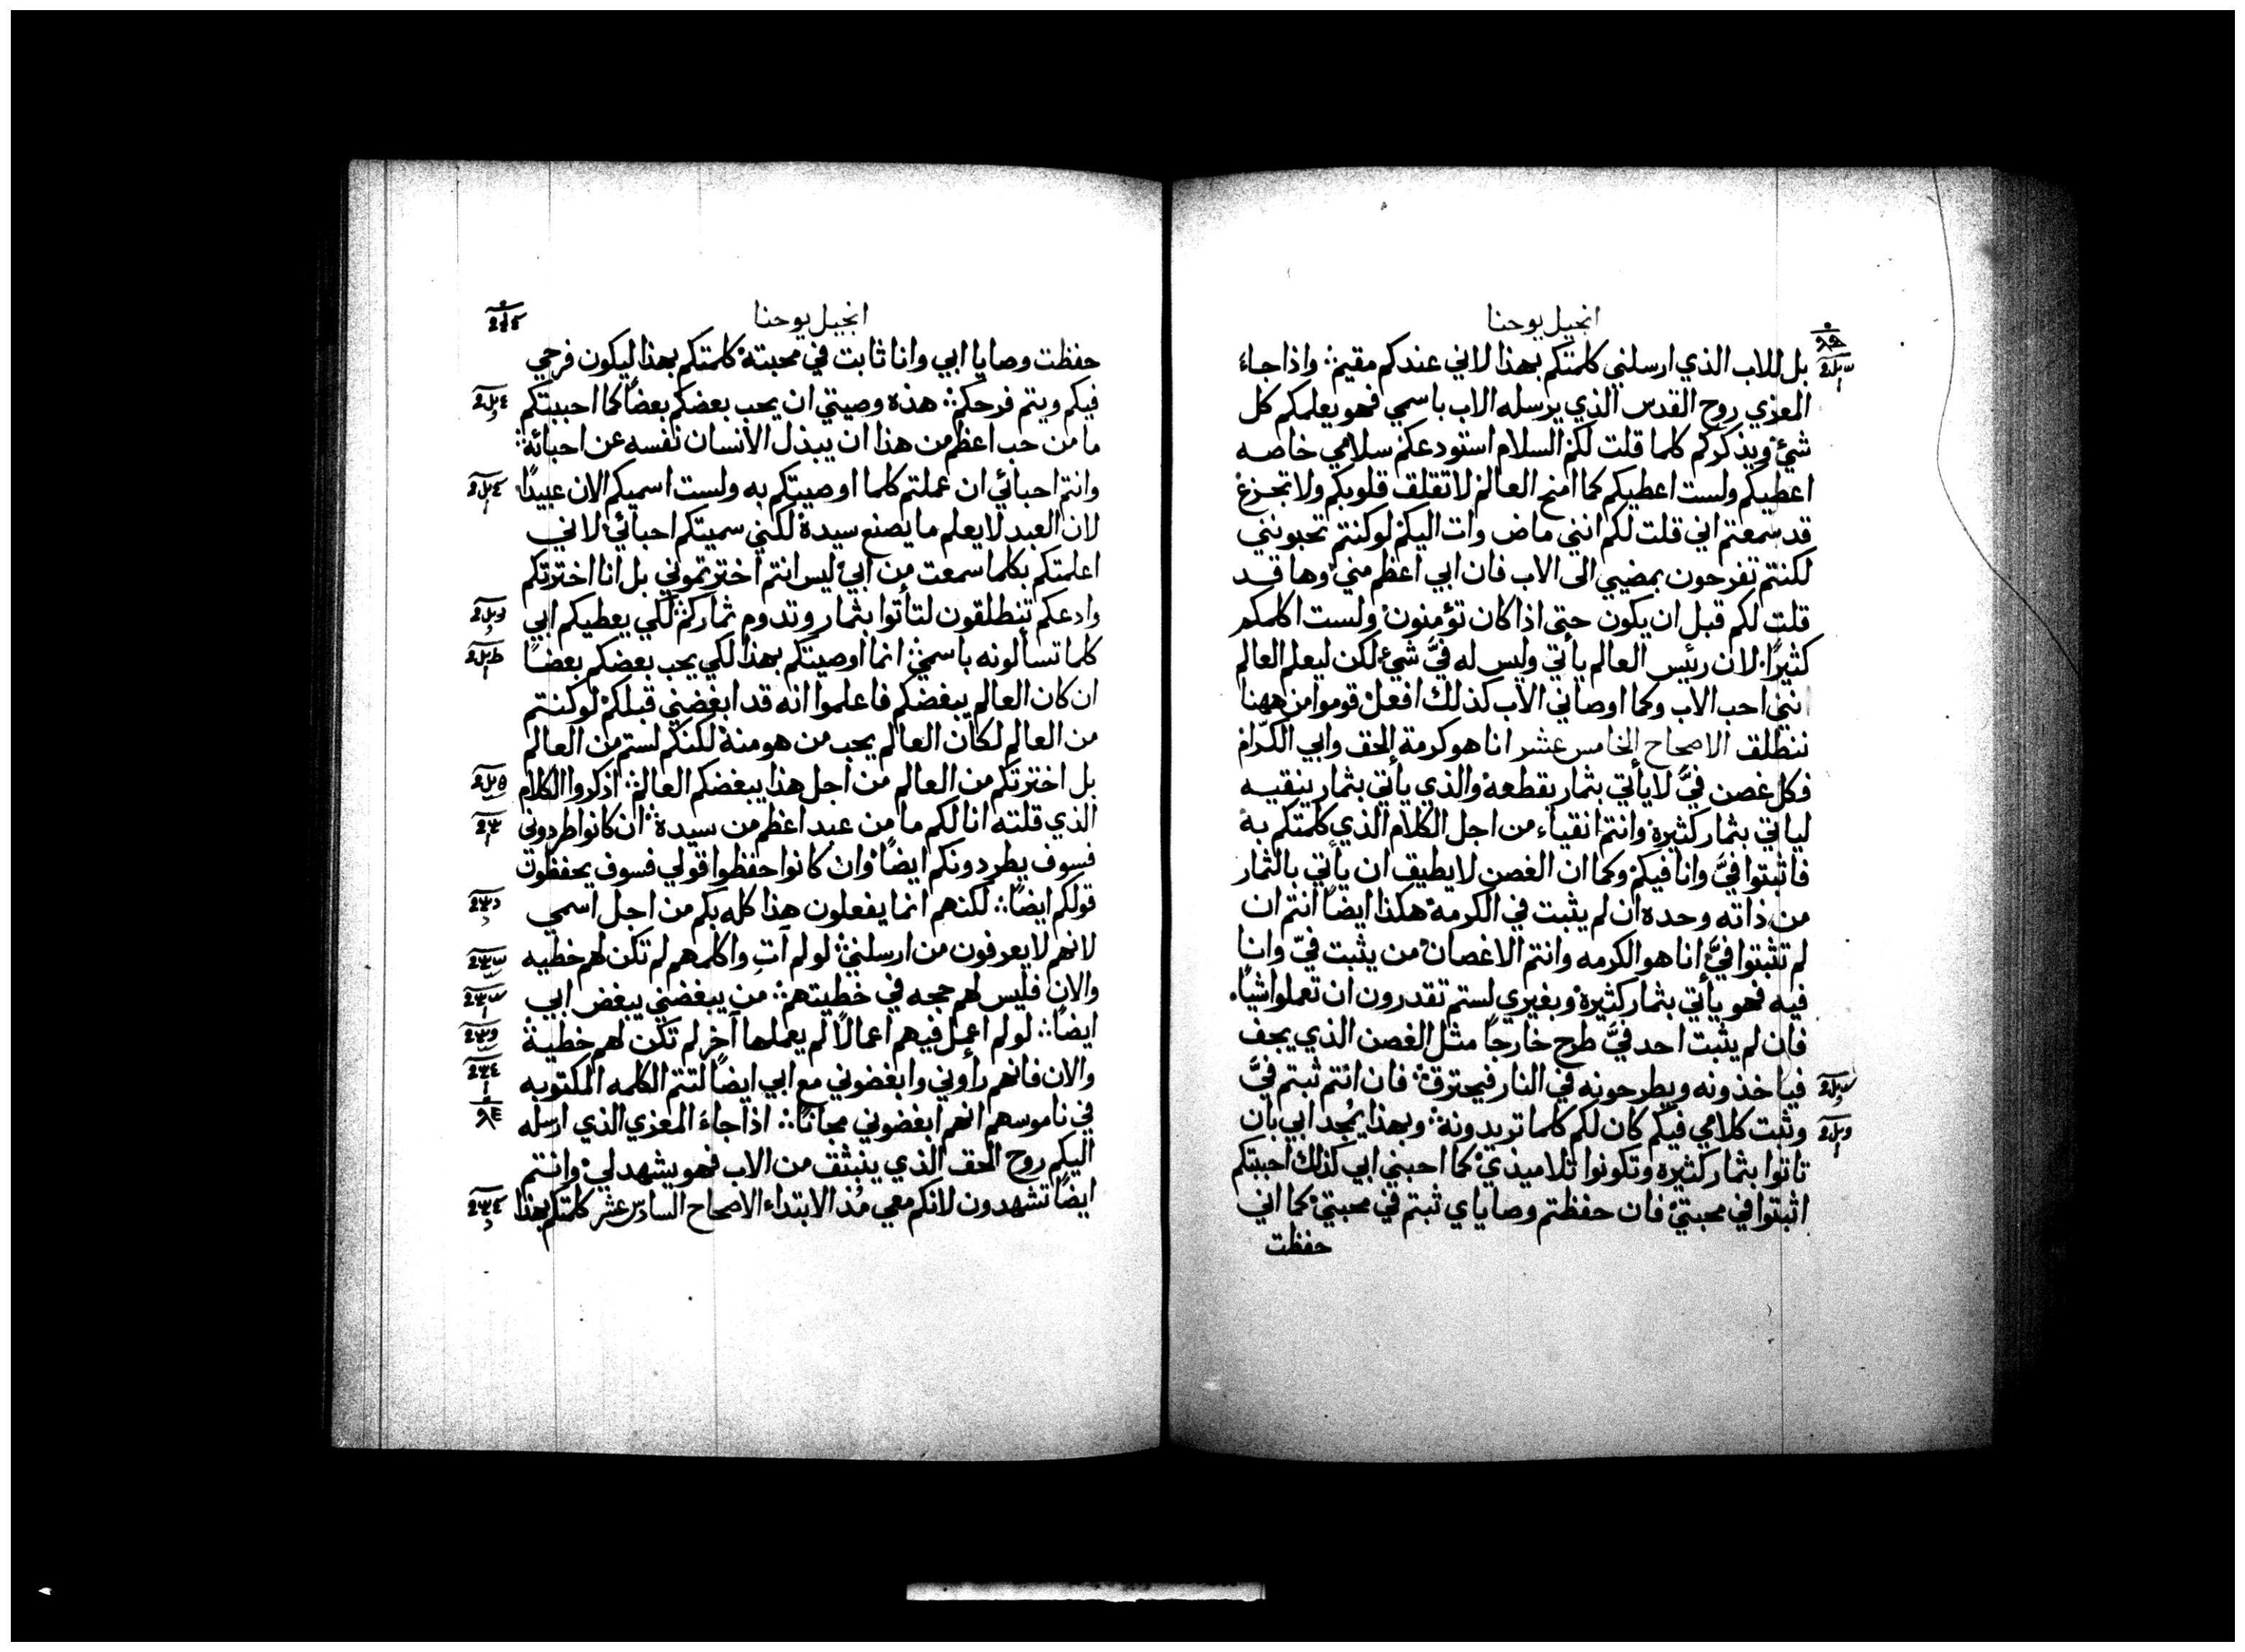 انجيل يوحنا
بل للاب الذي ارسلني كلمتكم بهذا لاني عندكم مقيم؛ واذا جاء
المعزي روح القدس الذي يرسله الاب باسمي فهو يعلمكم كل
شيءٍ ويذكركم كلما قلت لكم السلام استودعكم سلامي خاصه
اعطيكم ولست اعطيكم كما امنح العالم لا تقلق قلوبكم ولا تجزع
قد سمعتم اني قلت لكم انني ماض وات اليكم لو كنتم تحبونني
لكنتم تفرحون بمضيي الى الاب فان ابي اعظم مني وها قد
قلت لكم قبل ان يكون حتى اذا كان تؤمنون ولست اكلمكم
كثيرًا لان رئيس العالم يأتي وليس له فيَّ شيء لكن ليعلم العالم
انني احب الاب وكما اوصاني الاب كذلك افعل قوموا من ههنا
ننطلق الاصحاح الخامس عشر انا هو كرمة الحق وابي الكرّام
فكل غصن فيَّ لا يأتي بثمار يقطعه والذي يأتي بثمار ينقيه
لياتي بثمار كثيرة وانتم انقياء من اجل الكلام الذي كلمتكم به
فاثبتوا فيَّ وانا فيكم وكما ان الغصن لا يطيق ان يأتي بالثمار
من ذاته وحده ان لم يثبت في الكرمة هكذا ايضًا انتم ان
لم تثبتوا فيَّ انا هو الكرمه وانتم الاغصان من يثبت فيّ وانا
فيه فهو يأتي بثمار كثيرة وبغيري لستم تقدرون ان تعملوا شيًا
فان لم يثبت احد فيَّ طرح خارجًا مثل الغصن الذي يجف
فياخذونه ويطرحونه في النار فيحترق؛ فان انتم ثبتم فيَّ
وثبت كلامي فيكم كان لكم كلما تريدونه؛ وبهذا يُمجد ابي بان
تاتوا بثمار كثيره وتكونوا تلاميذي كما احبني ابي كذلك احببتكم
اثبتوا في محبتي فان حفظتم وصاياي ثبتم في محبتي كما اني
حفظت
انجيل يوحنا
حفظت وصايا ابي وانا ثابت في محبته كلمتكم بهذا ليكون فرحي
فيكم ويتم فرحكم؛ هذه وصيتي ان يحب بعضكم بعضًا كما احببتكم
ما من حب اعظم من هذا ان يبذل الانسان نفسه عن احبائه؛
وانتم احبائي ان عملتم كلما اوصيتكم به ولست اسميكم الان عبيدًا
لان العبد لا يعلم ما يصنع سيده لكني سميتكم احبائي لاني
اعلمتكم بكلما سمعت من ابي ليس انتم اخترتموني بل انا اخترتكم
وادعكم تنطلقون لتأتوا بثمار وتدوم ثماركم لكي يعطيكم ابي
كلما تسألونه باسمي؛ انما اوصيتكم بهذا لكي يحب بعضكم بعضًا
ان كان العالم يبغضكم فاعلموا انه قد ابغضني قبلكم لو كنتم
من العالم لكان العالم يحب من هو منه لكنكم لستم من العالم
بل اخترتكم من العالم من اجل هذا يبغضكم العالم؛ اذكروا الكلام
الذي قلته انا لكم ما من عبد اعظم من سيده؛ ان كانوا طردوني
فسوف يطردونكم ايضًا وان كانوا حفظوا قولي فسوف يحفظون
قولكم ايضًا؛ لكنهم انما يفعلون هذا كله بكم من اجل اسمي
لانهم لا يعرفون من ارسلني؛ لو لم آتِ واكلمهم لم تكن لهم خطيه
والان فليس لهم حجه في خطيتهم؛ من يبغضني يبغض ابي
ايضًا؛ لو لم اعمل فيهم اعمالًا لم يعملها آخر لم تكن لهم خطية
والان فانهم رأوني وابغضوني مع ابي ايضًا لتتم الكلمه المكتوبه
في ناموسهم انهم ابغضوني مجانًا؛ اذا جاءَ المعزي الذي ارسله
اليكم روح الحق الذي ينبثق من الاب فهو يشهد لي وانتم
ايضًا تشهدون لانكم معي مُذ الابتداء الاصحاح السادس عشر كلمتكم بهذا